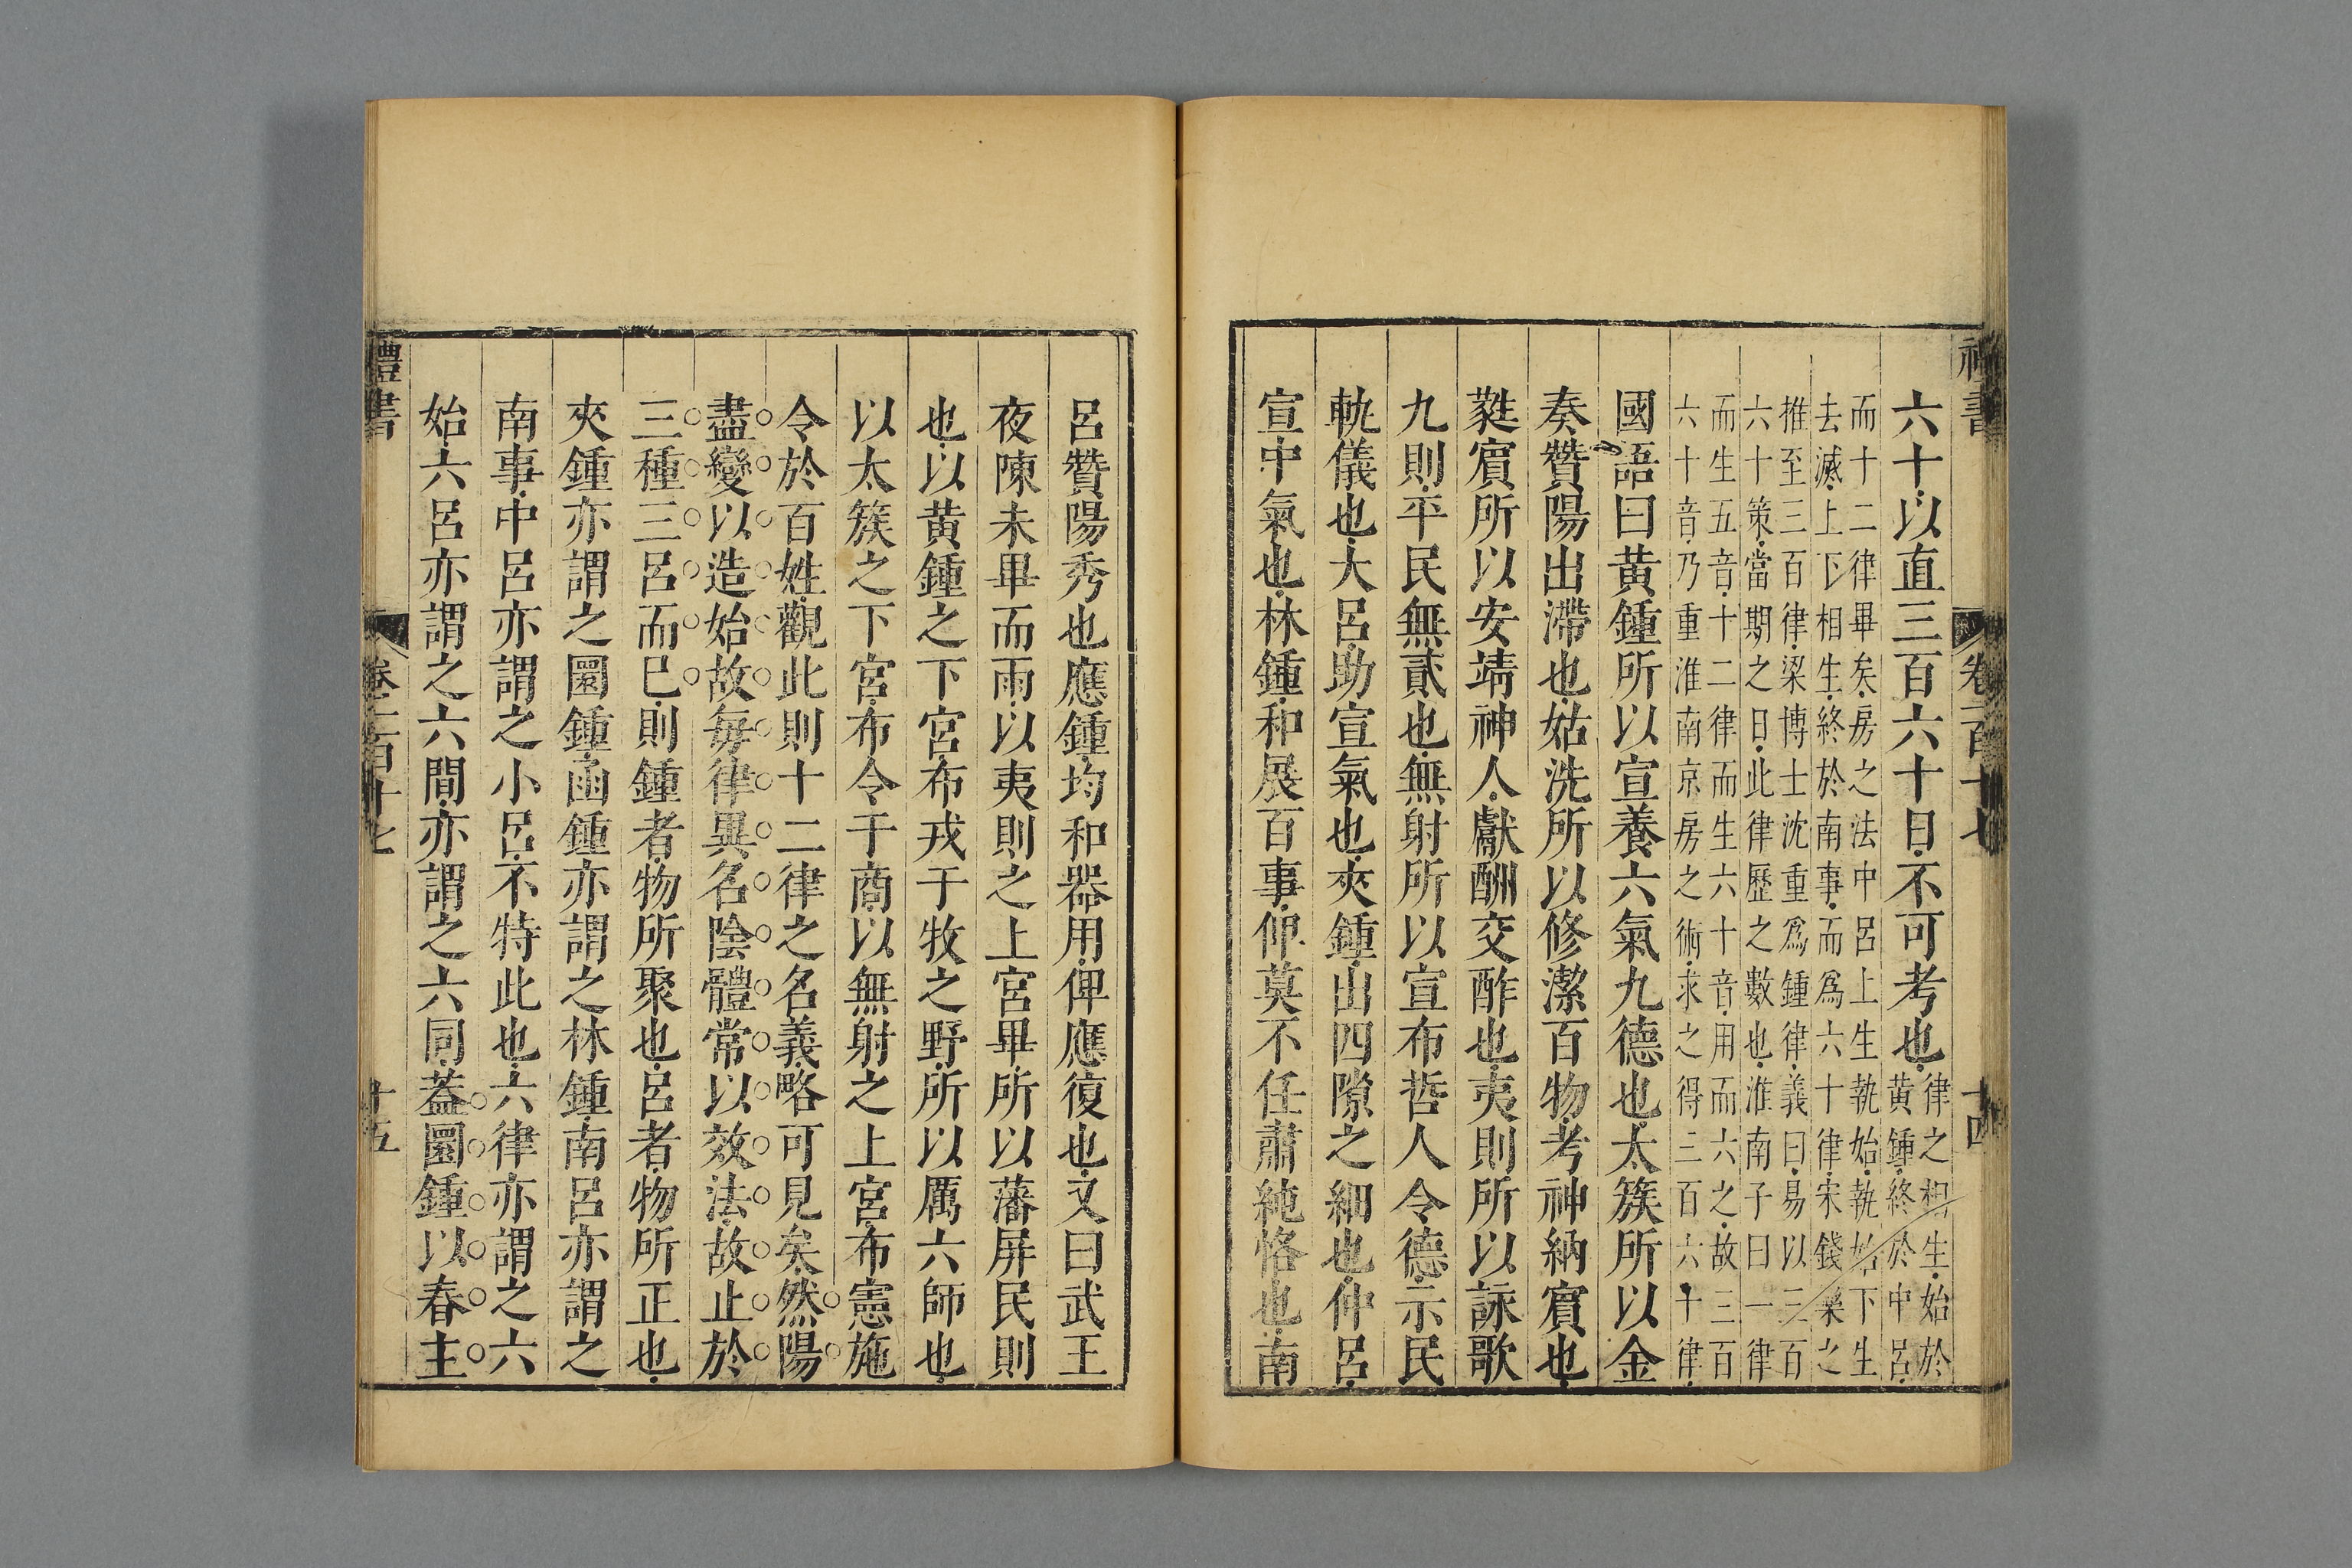 禮書
卷一百十七
十四
六十以直三百六十日不可考也
律之相生始於
黃鍾終於中呂
而十二律畢矣房之法中呂上生執始執始下生
去滅上下相生終於南事而爲六十律宋錢樂之
推至三百律梁博士沈重爲鍾律義曰易以三百
六十策當期之日此律歷之數也淮南子曰一律
而生五音十二律而生六十音用而六之故三百
六十音乃重淮南京房之術求之得三百六十律
國語曰黃鍾所以宣養六氣九德也太簇所以金
奏贊陽出滯也姑洗所以修潔百物考神納賓也
蕤賓所以安靖神人獻酬交酢也夷則所以詠歌
九則平民無貳也無射所以宣布哲人令德示民
軌儀也大呂助宣氣也夾鍾出四隙之細也仲呂
宣中氣也林鍾和展百事俾莫不任肅純恪也南
呂贊陽秀也應鍾均和器用俾應復也又曰武王
夜陳未畢而雨以夷則之上宮畢所以藩屏民則
也以黃鍾之下宮布戎于牧之野所以厲六師也
以太簇之下宮布令于商以無射之上宮布憲施
令於百姓觀此則十二律之名義略可見矣然陽
盡變以造始故每律異名陰體常以效法故止於
三種三呂而已則鍾者物所聚也呂者物所正也
夾鍾亦謂之圜鍾函鍾亦謂之林鍾南呂亦謂之
南事中呂亦謂之小呂不特此也六律亦謂之六
始六呂亦謂之六間亦謂之六同蓋圜鍾以春主
禮書
卷一百十七
十五